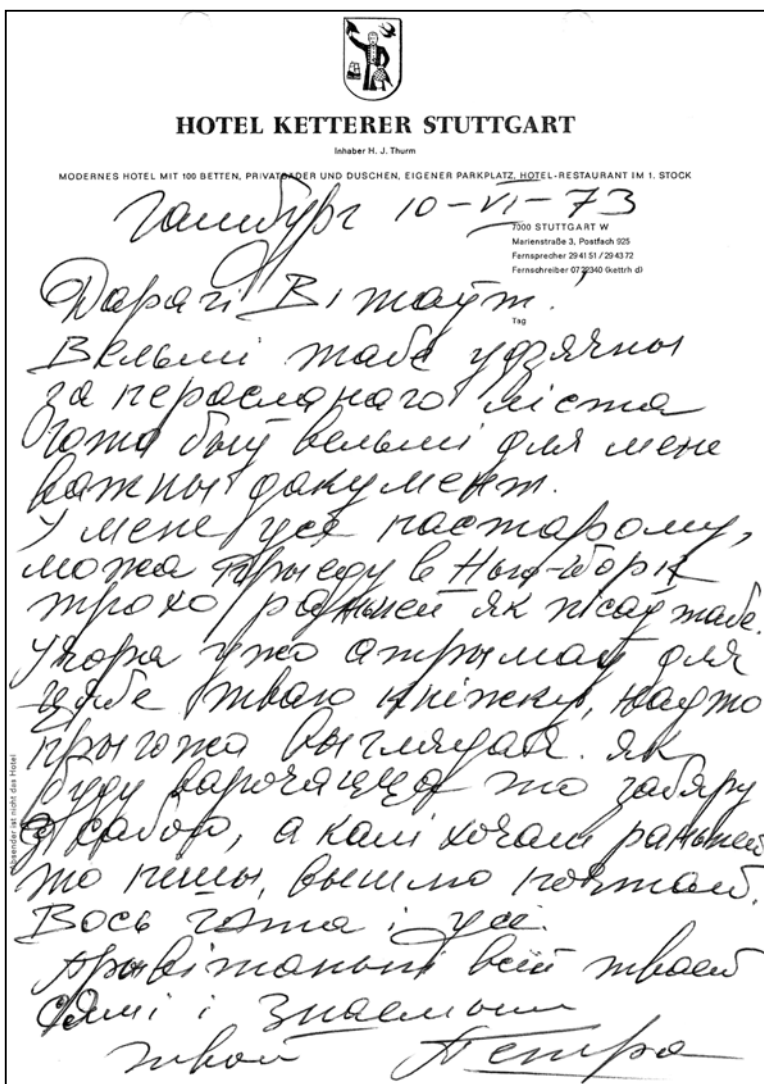 HOTEL KETTERER STUTTGART
Inhaber H. J. Thurm
MODERNES HOTEL MIT 100 BETTEN, PRIVATBÄDER UND DUSCHEN, EIGENER PARKPLATZ, HOTEL-RESTAURANT IM 1. STOCK
Гамбург 10-VI-73
7000 STUTTGART W
Marienstraße 3, Postfach 925
Fernsprecher 29 41 51 / 29 43 72
Fernschreiber 07 22340 (kettrh d)
Tag
Дарагі Вітаўт.
Вельмі табе удзячны
за перасланаго ліста
Гэта быў вельмі для мене
важны дакумент.
У мене усё пастарому,
можа прыеду в Нью-Йорк
трохо раньшей як пісаў табе.
Учора ужо атрымаў для
цябе тваю кніжку, надто
прыгожа выглядая. як
буду варочацца то забяру
з сабою, а калі хочаш раньшей
то пішы, вышлю поштай.
Вось гэта і усё.
Прывітаньні всей твоей
сямі і знаемым
твой Петра
Absender ist nicht das Hotel